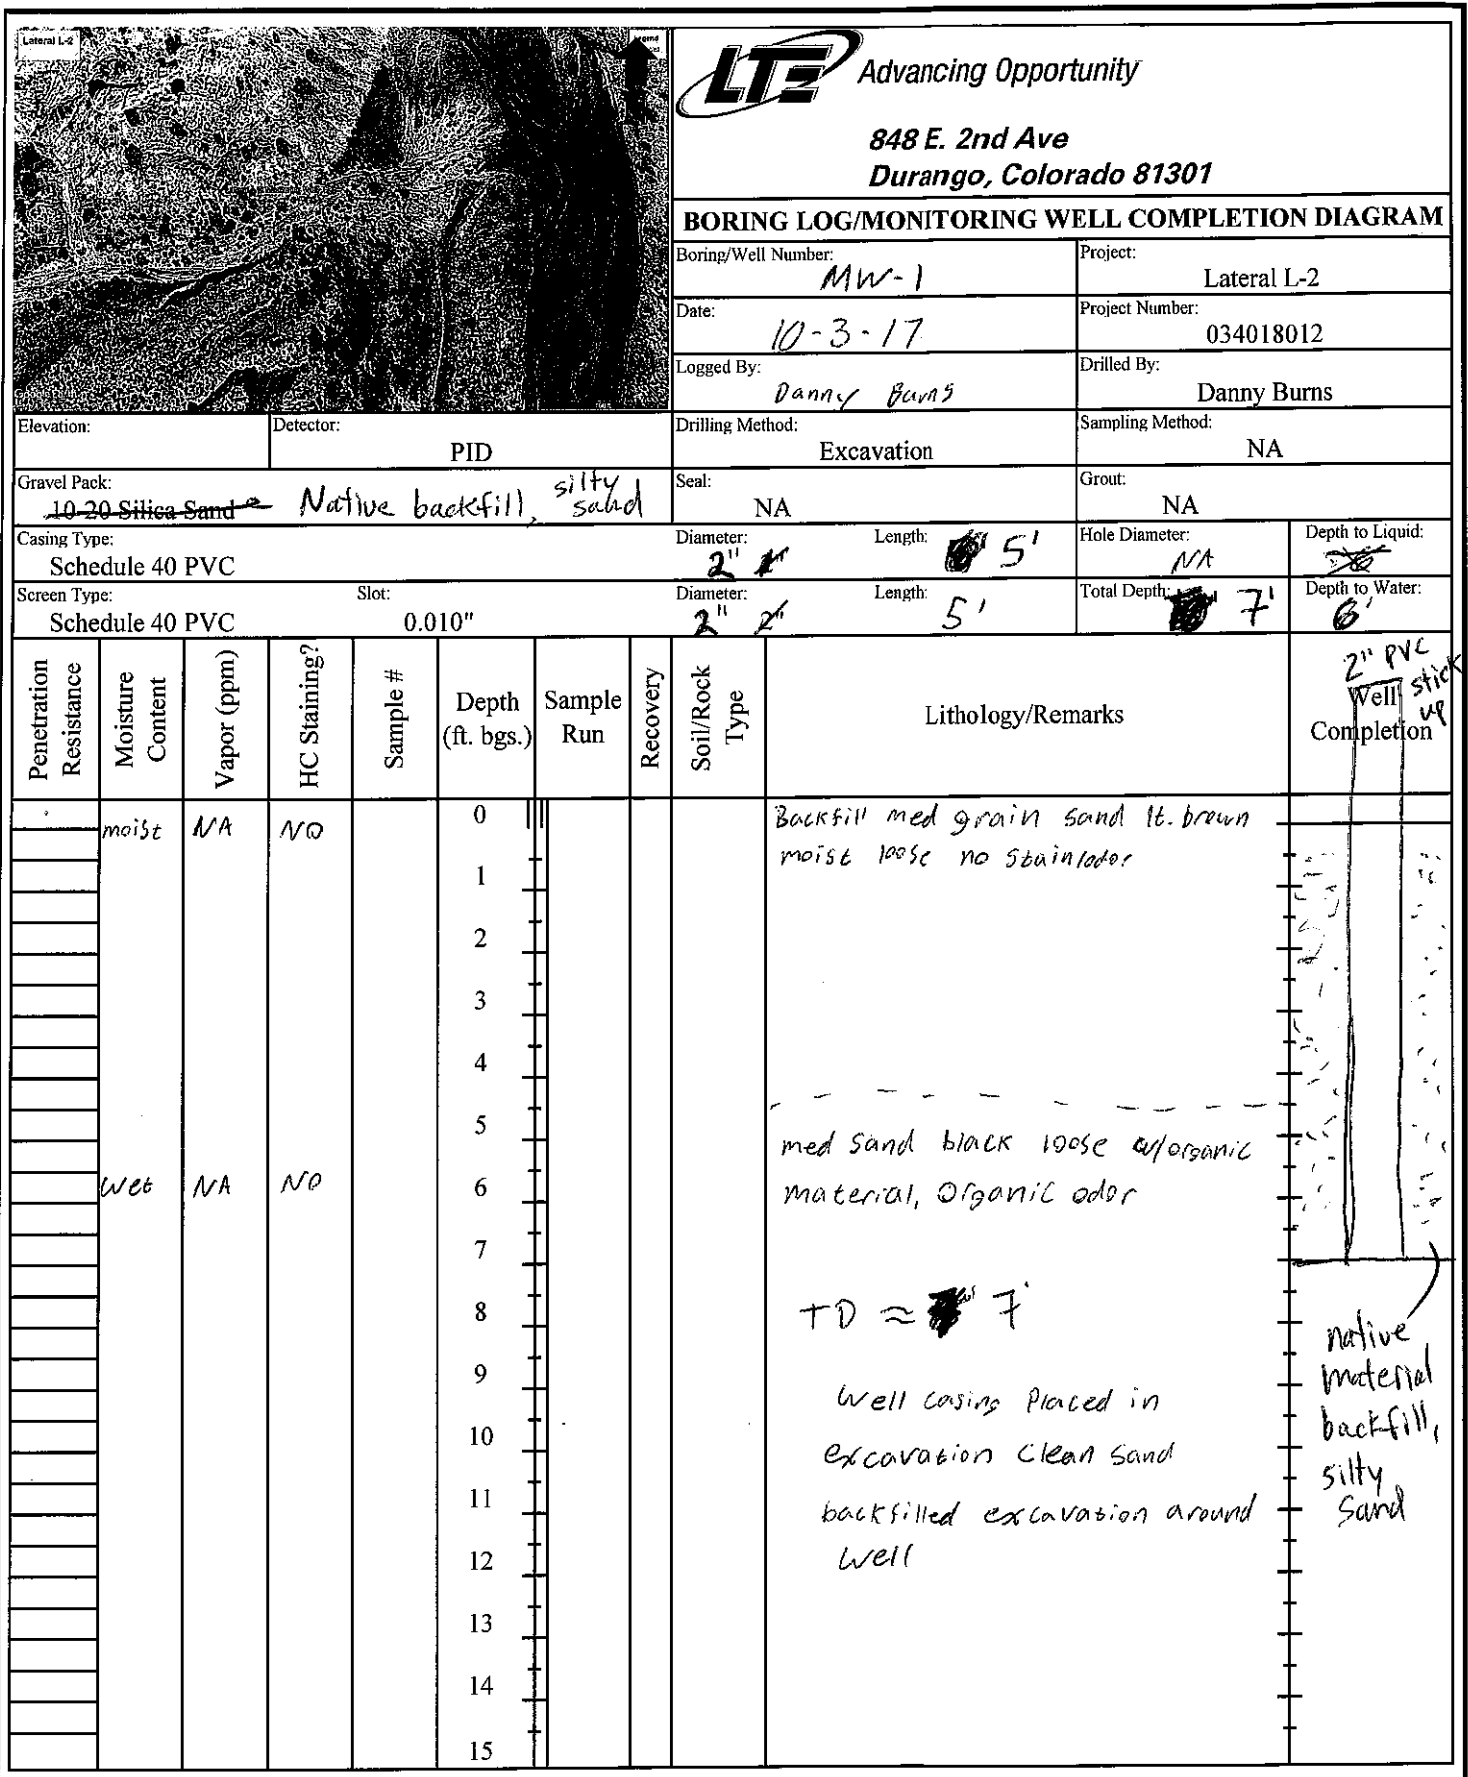 Lateral L-2
LTE Advancing Opportunity
848 E. 2nd Ave
Durango, Colorado 81301
BORING LOG/MONITORING WELL COMPLETION DIAGRAM
Boring/Well Number: MW-1
Project: Lateral L-2
Date: 10-3-17
Project Number: 034018012
Logged By: Danny Burns
Drilled By: Danny Burns
Elevation:
Detector: PID
Drilling Method: Excavation
Sampling Method: NA
Gravel Pack: 10-20 Silica Sand Native backfill, silty sand
Seal: NA
Grout: NA
Casing Type: Schedule 40 PVC
Diameter: 2"
Length: 5'
Hole Diameter: NA
Depth to Liquid:
Screen Type: Schedule 40 PVC
Slot: 0.010"
Diameter: 2" 2"
Length: 5'
Total Depth: 7'
Depth to Water: 6'
Penetration Resistance
Moisture Content
Vapor (ppm)
HC Staining?
Sample #
Depth (ft. bgs.)
Sample Run
Recovery
Soil/Rock Type
Lithology/Remarks
Well Completion
2" PVC stick up
0
moist NA NO
Backfill med grain sand lt. brown
moist loose no stain/odor
1
2
3
4
5
med sand black loose w/organic
wet NA NO
6
material, Organic odor
7
8
TD ≈ 7'
9
Well casing Placed in
10
excavation Clean Sand
11
backfilled excavation around
12
Well
native
material
backfill,
silty
sand
13
14
15